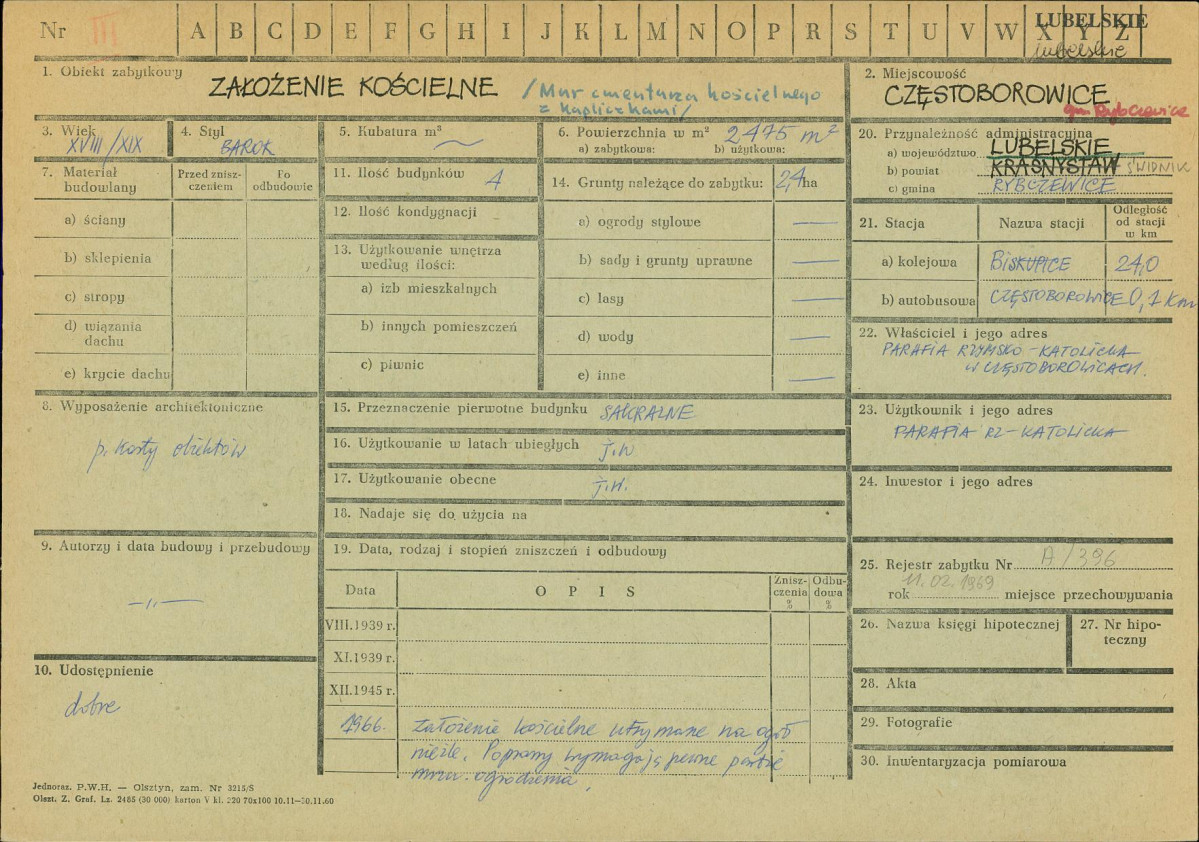 Nr III A B C D E F G H I J K L M N O P R S T U V W X Y Z
LUBELSKIE
lubelskie
1. Obiekt zabytkowy
ZAŁOŻENIE KOŚCIELNE /Mur cmentarza kościelnego
z kapliczkami/
2. Miejscowość
CZĘSTOBOROWICE
gm. Rybczewice
3. Wiek
XVIII/XIX
4. Styl
BAROK
5. Kubatura m³
6. Powierzchnia w m² 2475 m²
a) zabytkowa: b) użytkowa:
7. Materiał budowlany
Przed znisz-
czeniem
Po
odbudowie
a) ściany
b) sklepienia
c) stropy
d) wiązania
dachu
e) krycie dachu
8. Wyposażenie architektoniczne
p. karty obiektów
9. Autorzy i data budowy i przebudowy
—„—
10. Udostępnienie
dobre
11. Ilość budynków 4
12. Ilość kondygnacji
13. Użytkowanie wnętrza
według ilości:
a) izb mieszkalnych
b) innych pomieszczeń
c) piwnic
14. Grunty należące do zabytku: 2,4 ha
a) ogrody stylowe —
b) sady i grunty uprawne —
c) lasy —
d) wody —
e) inne —
15. Przeznaczenie pierwotne budynku SAKRALNE
16. Użytkowanie w latach ubiegłych j.w
17. Użytkowanie obecne j.w.
18. Nadaje się do użycia na
19. Data, rodzaj i stopień zniszczeń i odbudowy
Data
O P I S
Znisz-
czenia
%
Odbu-
dowa
%
VIII.1939 r.
XI.1939 r.
XII.1945 r.
1966. założenie kościelne utrzymane na ogół
nieźle. Poprawy wymagają pewne partie
muru ogrodzenia.
20. Przynależność administracyjna
a) województwo LUBELSKIE
b) powiat KRASNYSTAW ŚWIDNIK
c) gmina RYBCZEWICE
21. Stacja
Nazwa stacji
Odległość
od stacji
w km
a) kolejowa BISKUPICE 24,0
b) autobusowa CZĘSTOBOROWICE 0,1 km
22. Właściciel i jego adres
PARAFIA RZYMSKO-KATOLICKA
W CZĘSTOBOROWICACH.
23. Użytkownik i jego adres
PARAFIA RZ-KATOLICKA
24. Inwestor i jego adres
25. Rejestr zabytku Nr A/396
rok 11.02.1969 miejsce przechowywania
26. Nazwa księgi hipotecznej
27. Nr hipo-
teczny
28. Akta
29. Fotografie
30. Inwentaryzacja pomiarowa
Jednoraz. P.W.H. — Olsztyn, zam. Nr 3215/S
Olszt. Z. Graf. Lz. 2485 (30 000) karton V kl. 220 70x100 10.11—30.11.60